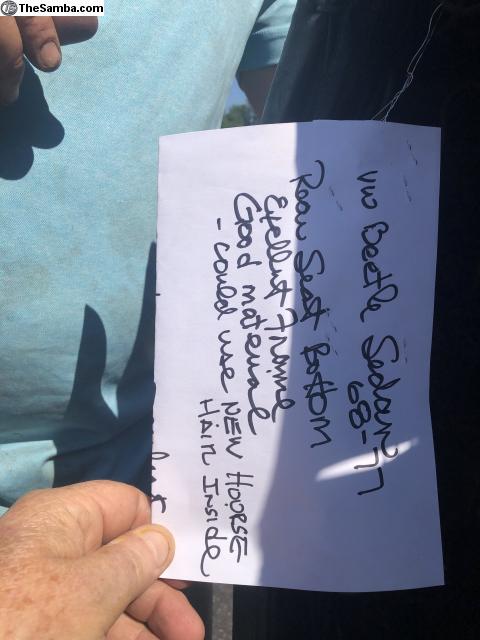 © TheSamba.com
VW Beetle Sedan
68-77
Rear Seat Bottom
Exellent Frame
Good material
- could use NEW Hoorse
Hair Inside